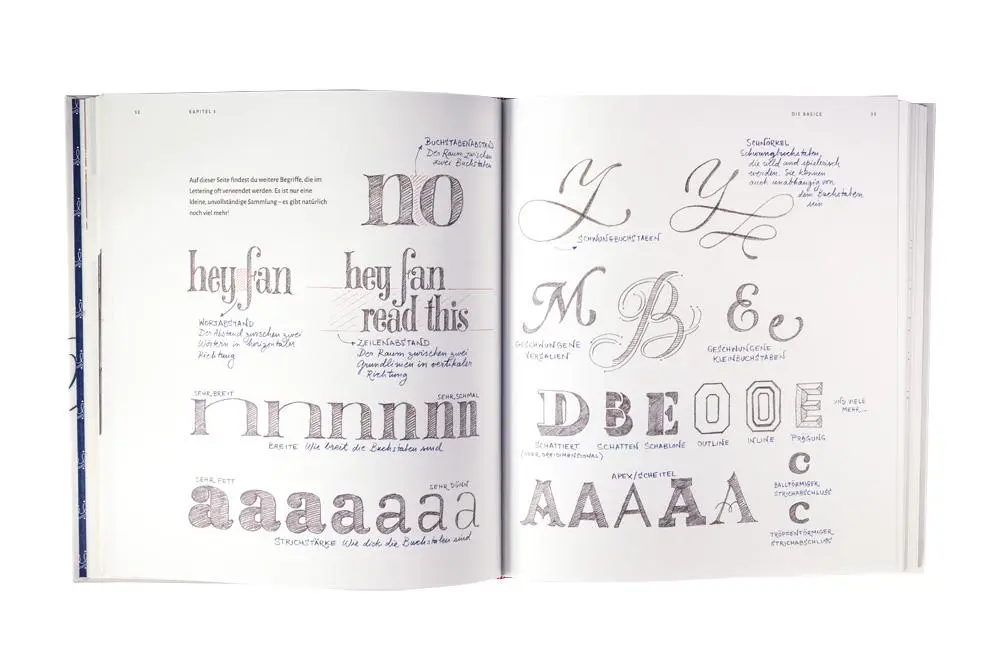 52
KAPITEL 3
Auf dieser Seite findest du weitere Begriffe, die im
Lettering oft verwendet werden. Es ist nur eine
kleine, unvollständige Sammlung – es gibt natürlich
noch viel mehr!
BUCHSTABENABSTAND
Der Raum zwischen
zwei Buchstaben
no
hey fan
WORTABSTAND
Der Abstand zwischen zwei
Wörtern in horizontaler
Richtung
hey fan
read this
ZEILENABSTAND
Der Raum zwischen zwei
Grundlinien in vertikaler
Richtung
SEHR BREIT
SEHR SCHMAL
nnnnnn
BREITE Wie breit die Buchstaben sind
SEHR FETT
SEHR DÜNN
aaaaaaa
STRICHSTÄRKE Wie dick die Buchstaben sind
DIE BASICS
53
SCHNÖRKEL
Schwungbuchstaben,
die wild und spielerisch
werden. Sie können
auch unabhängig von
dem Buchstaben
sein
Y Y
SCHWUNGBUCHSTABEN
M B E e
GESCHWUNGENE
VERSALIEN
GESCHWUNGENE
KLEINBUCHSTABEN
D B E O O E
UND VIELE
MEHR...
SCHATTIERT
(ODER DREIDIMENSIONAL)
SCHATTEN
SCHABLONE
OUTLINE
INLINE
PRÄGUNG
APEX/SCHEITEL
AAAAA
C
BALLFÖRMIGER
STRICHABSCHLUSS
C
TROPFENFÖRMIGER
STRICHABSCHLUSS